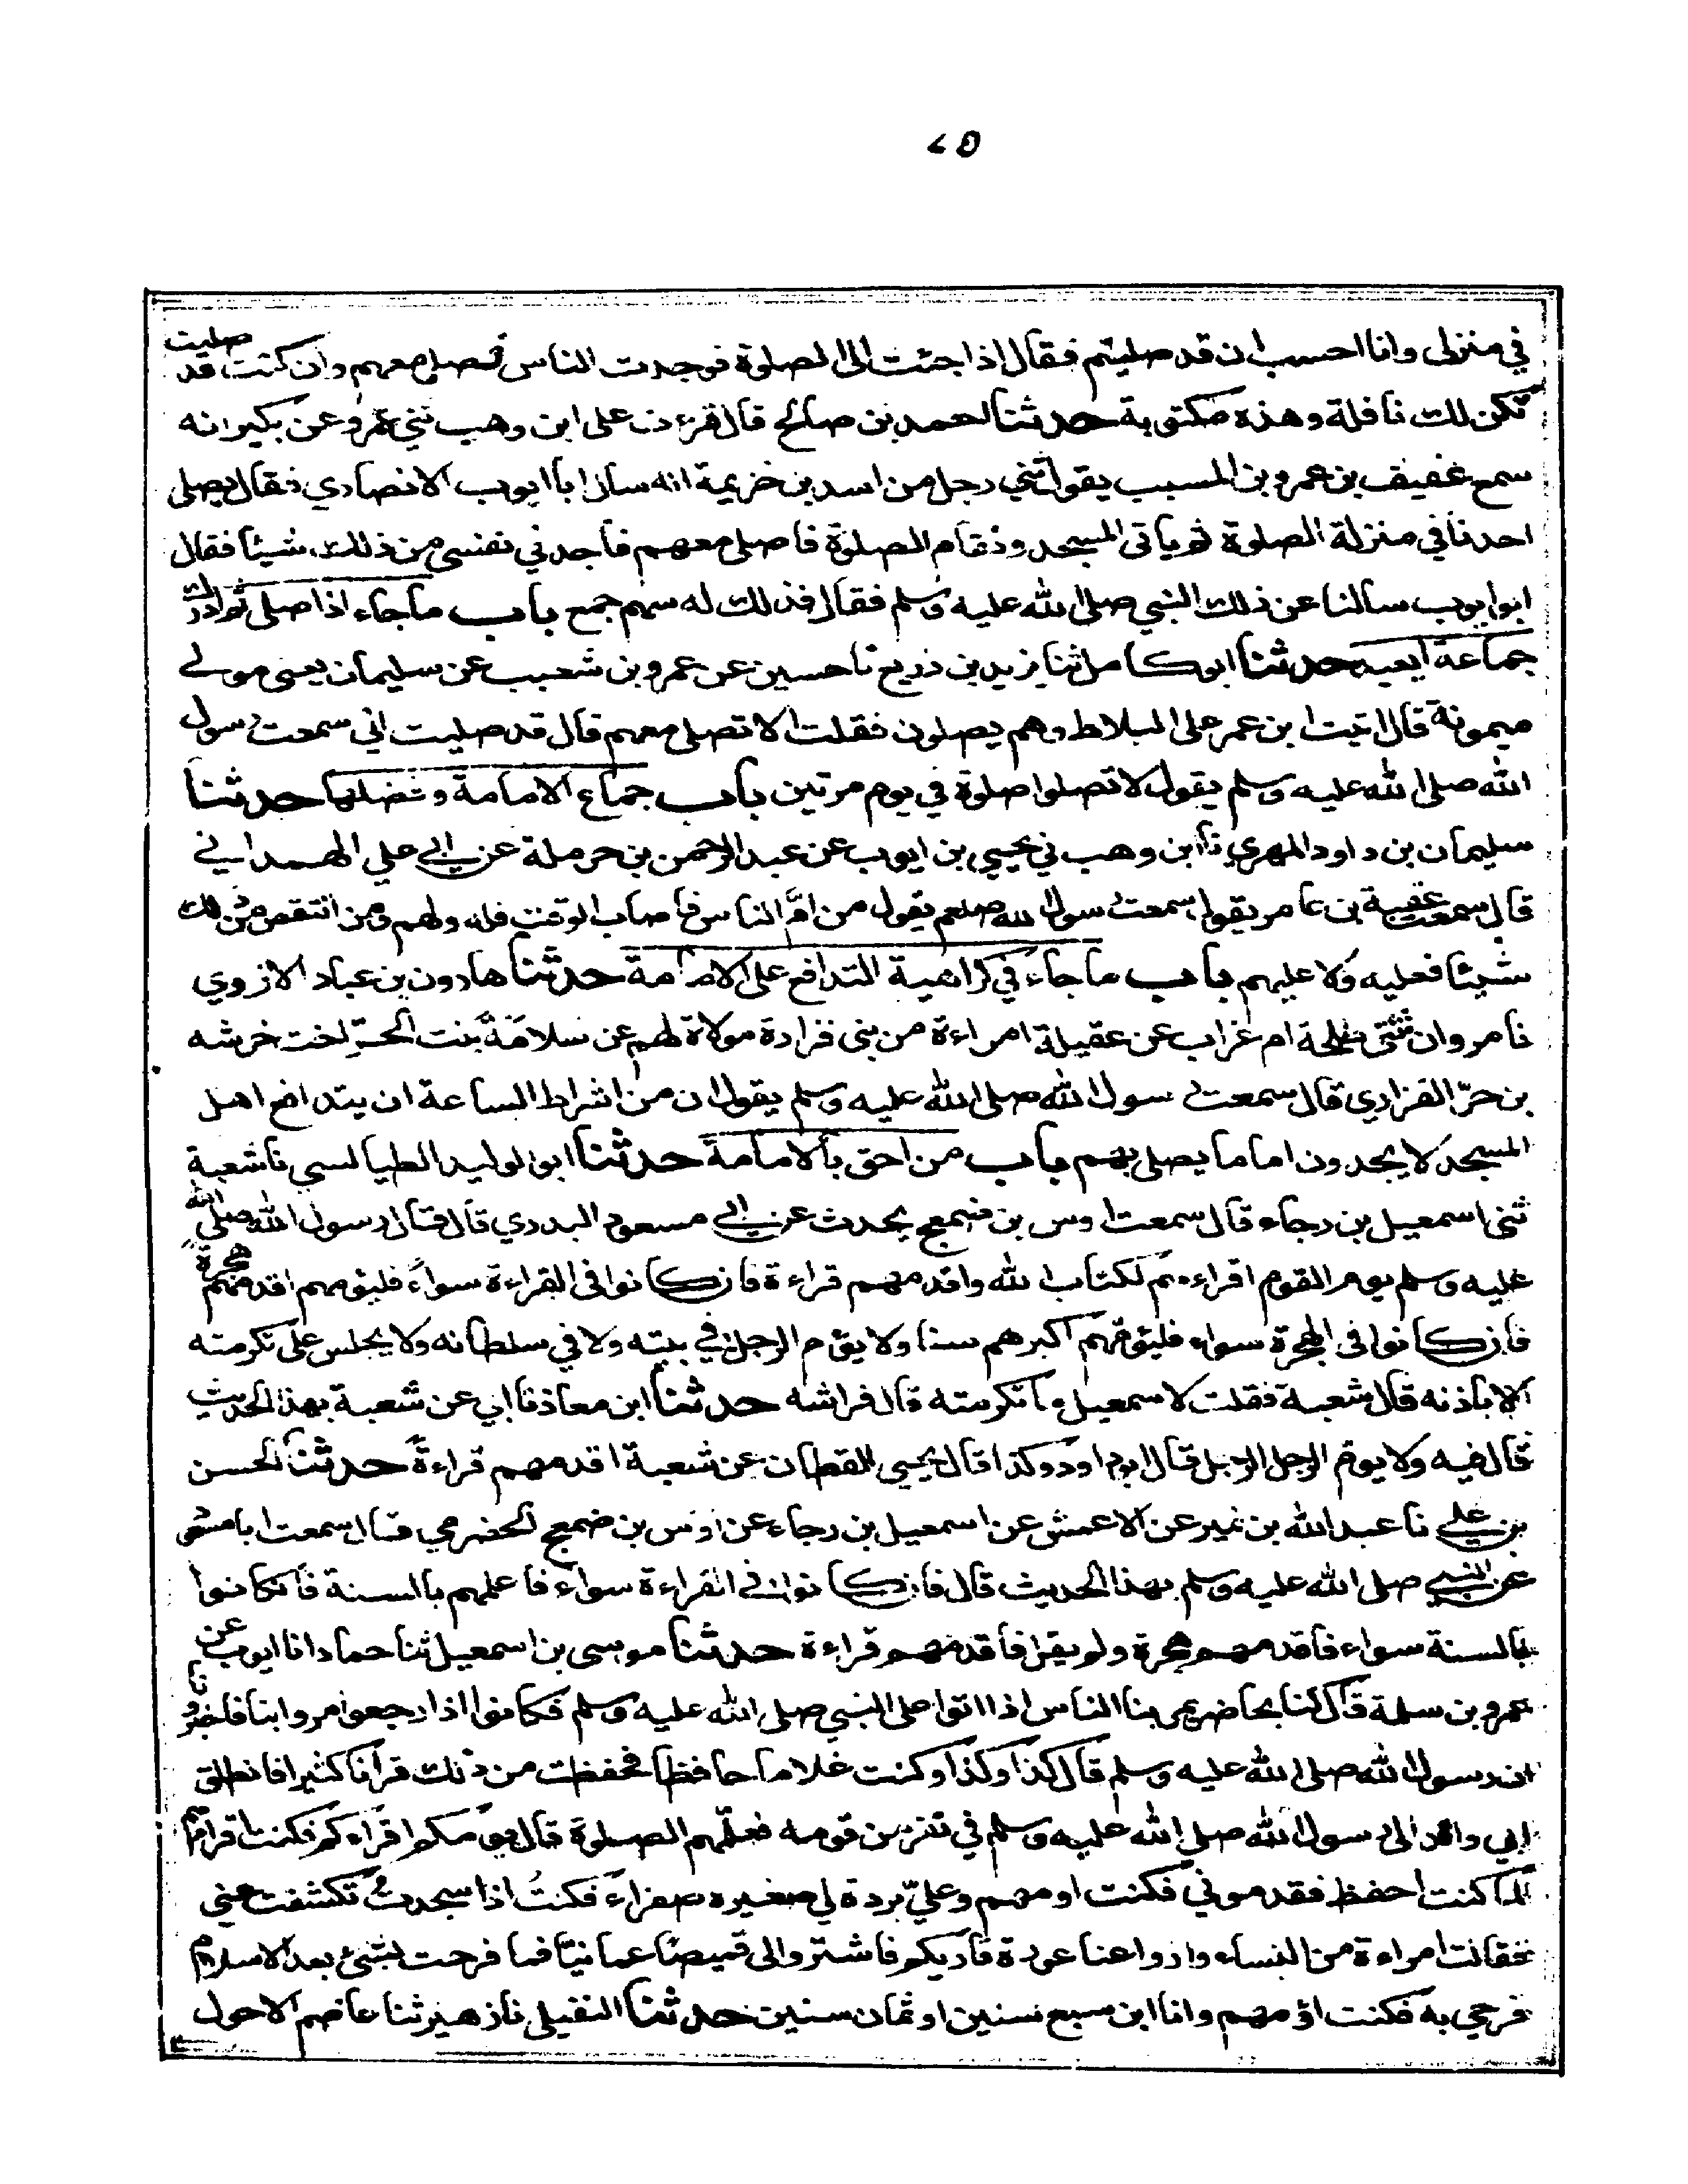 ٧٥
في منزلى وانا احسب ان قد صليتم فقال اذا جئت الى الصلوة فوجدت الناس فصل معهم وان كنت قد صليت
تكن لك نافلة وهذه مكتوبة حدثنا احمد بن صالح قال قرءت على ابن وهب ثني عمرو عن بكير انه
سمع عفيف بن عمرو بن المسيب يقول ثني رجل من اسد بن خزيمة انه سال ابا ايوب الانصاري فقال يصلي
احدنا في منزلة الصلوة ثم ياتى المسجد وتقام الصلوة فاصلى معهم فاجد في نفسى من ذلك شيئا فقال
ابو ايوب سالنا عن ذلك النبي صلى الله عليه وسلم فقال فذلك له سهم جمع باب ما جاء اذا صلى ثم ادرك
جماعة ايعيد حدثنا ابو كامل ثنا يزيد بن زريع نا حسين عن عمرو بن شعيب عن سليمان يعنى مولى
ميمونة قال اتيت ابن عمر على البلاط وهم يصلون فقلت الا تصلى معهم قال قد صليت اني سمعت رسول
الله صلى الله عليه وسلم يقول لا تصلوا صلوة في يوم مرتين باب جماع الامامة وفضلها حدثنا
سليمان بن داود المهري نا ابن وهب ني يحيى بن ايوب عن عبد الرحمن بن حرملة عن ابي علي الهمداني
قال سمعت عقبة بن عامر يقول سمعت رسول الله صلعم يقول من ام الناس فاصاب الوقت فله ولهم ومن انتقص من ذلك
شيئا فعليه ولا عليهم باب ما جاء في كراهية التدافع على الامامة حدثنا هارون بن عباد الازدي
نا مروان ثتنى طلحة ام غراب عن عقيلة امراءة من بنى فزارة مولاة لهم عن سلامة بنت الحر اخت خرشه
بن حرّ الفزاري قال سمعت رسول الله صلى الله عليه وسلم يقول ان من اشراط الساعة ان يتدافع اهل
المسجد لا يجدون اماما يصلى بهم باب من احق بالامامة حدثنا ابو الوليد الطيالسي نا شعبة
ثنى اسمعيل بن رجاء قال سمعت اوس بن ضمعج يحدث عن ابي مسعود البدري قال قال رسول الله صلى الله
عليه وسلم يوم القوم اقراءهم لكتاب الله واقدمهم قراءة فان كانوا في القراءة سواء فليؤمهم اقدمهم هجرة
فان كانوا في الهجرة سواء فليؤمّهم اكبرهم سنا ولا يؤم الرجل في بيته ولا في سلطانه ولا يجلس على تكرمته
الا باذنه قال شعبة فقلت لاسمعيل ما تكرمته قال فراشه حدثنا ابن معاذ نا ابي عن شعبة بهذا الحديث
قال فيه ولا يوم الرجل الرجل قال ابو داود وكذا قال يحيى القطان عن شعبة اقدمهم قراءة حدثنا الحسن
بن علي نا عبد الله بن نمير عن الاعمش عن اسمعيل بن رجاء عن اوس بن ضمعج الحضرمي قال سمعت ابا مسعود
عن النبي صلى الله عليه وسلم بهذا الحديث قال فان كانوا في القراءة سواء فاعلمهم بالسنة فان كانوا
بالسنة سواء فاقدمهم هجرة ولم يقل فاقدمهم قراءة حدثنا موسى بن اسمعيل ثنا حماد انا ايوب عن
عمرو بن سلمة قال كنا بحاضر يمر بنا الناس اذا اتوا النبي صلى الله عليه وسلم فكانوا اذا رجعوا مروا بنا فاخبرونا
ان رسول الله صلى الله عليه وسلم قال كذا وكذا وكنت غلاما حافظا فحفظت من ذلك قرآنا كثيرا فانطلق
ابي وافدا الى رسول الله صلى الله عليه وسلم في نفر من قومه فعلّمهم الصلوة قال يؤمكم اقراءكم فكنت اقراهم
لما كنت احفظ فقدموني فكنت اومهم وعليّ بردة لي صغيره صفراء فكنت اذا سجدت تكشفت عنى
فقالت امراءة من النساء واروا عنا عورة قاريكم فاشتروا لى قميصا عمانيا فما فرحت بشئ بعد الاسلام
فرحي به فكنت اؤمهم وانا ابن سبع سنين او ثمان سنين حدثنا النفيلي نا زهير ثنا عاصم الاحول